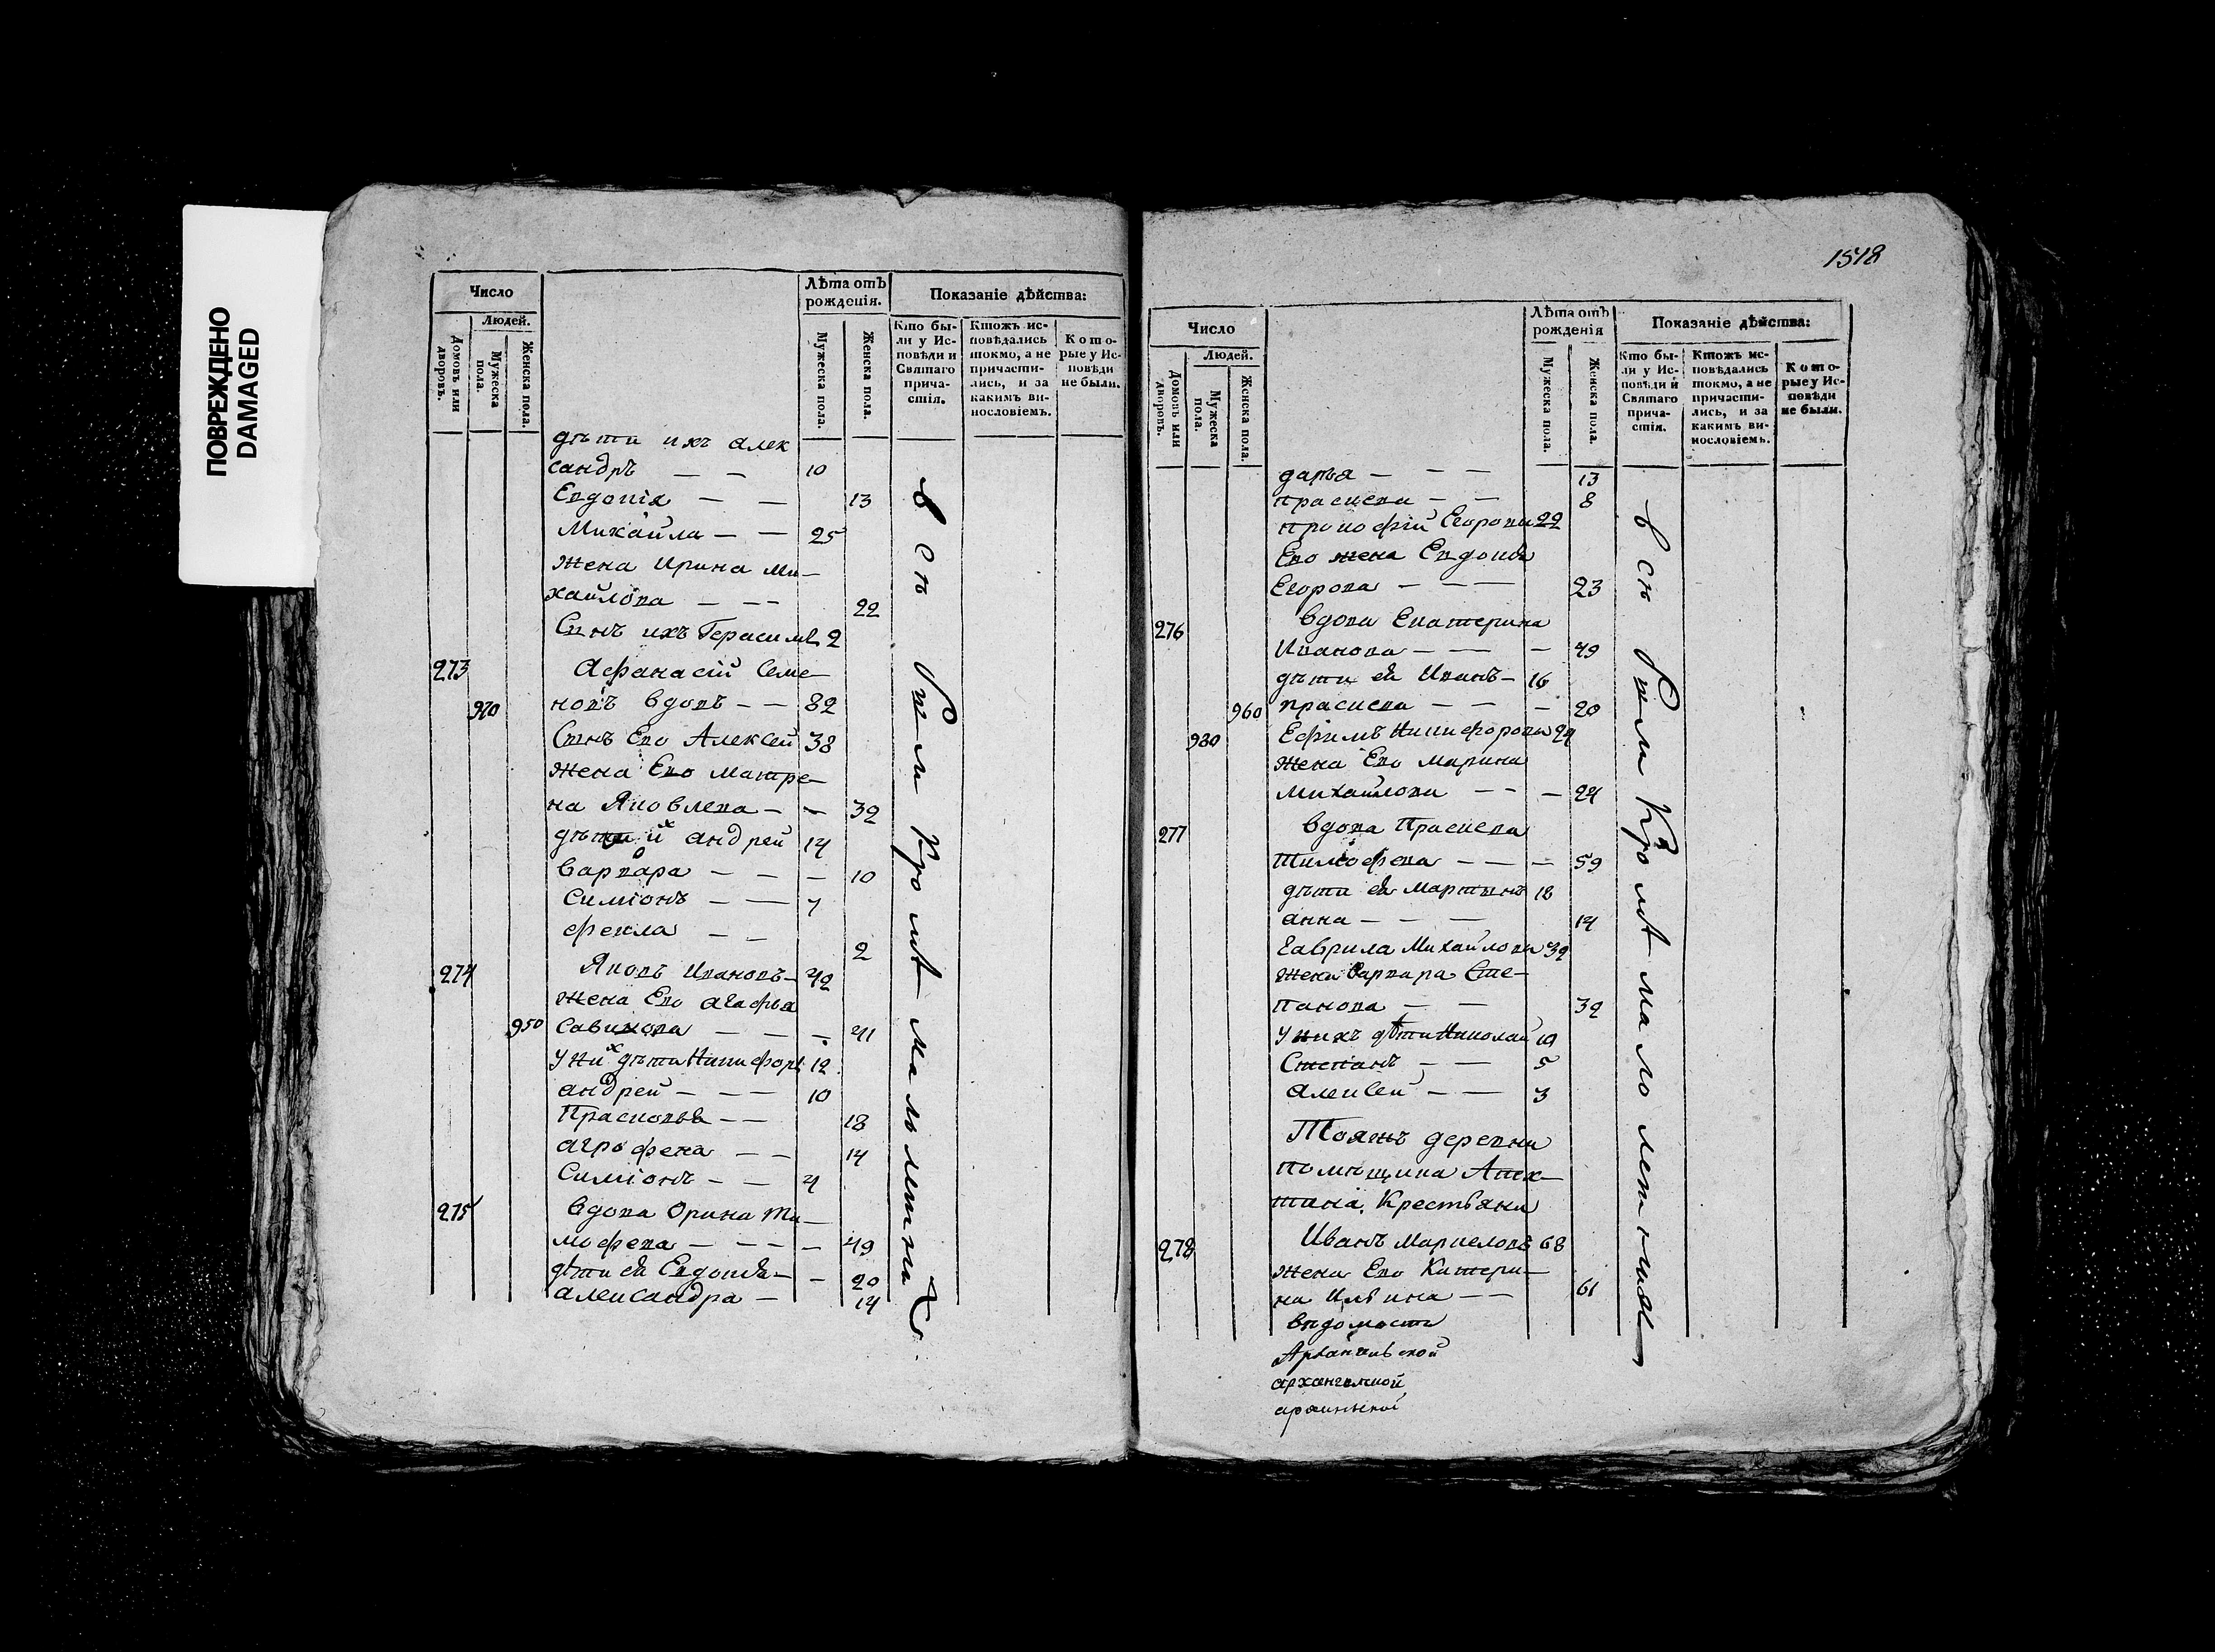 ПОВРЕЖДЕНО
DAMAGED
Число
Людей.
Домовъ или дворовъ.
Мужеска пола.
Женска пола.
Лѣта отъ
рожденія.
Мужеска пола.
Женска пола.
Показаніе дѣйства:
Кто бы-
ли у Ис-
повѣди и
Святаго
прича-
стія.
Ктожъ ис-
повѣдались
токмо, а не
причасти-
лись, и за
какимъ ви-
нословіемъ.
Кото-
рые у Ис-
повѣди
не были.
дѣти ихъ Алек
сандръ — — 10
Евдокія — — 13
Михайла — — 25
жена Ирина Ми—
хайлова — — — 22
Сынъ ихъ Герасимъ 2
273 Афанасій Семе—
970 новъ вдовъ — — 82
Сынъ Его Алексей 38
жена Его Матре—
на Яковлева — — 32
дѣти их Андрей 14
Варвара — — — 10
Симіонъ — — 7
Фекла — — 2
274 Яковъ Ивановъ — 42
жена Его Агафья
950 Савинова — — — 41
у них дѣти Никифоръ 12
Андрей — — — 10
Прасковья — — 18
Агрофена — — 14
Симіонъ — — 4
275 вдова Орина Ти—
мофева — — — — 49
дѣти ея Евдокія — — 20
Александра — 14
всѣ были кромѣ малѣтнихъ
1518
Число
Людей.
Домовъ или дворовъ.
Мужеска пола.
Женска пола.
Лѣта отъ
рожденія
Мужеска пола.
Женска пола.
Показаніе дѣйства:
Кто бы-
ли у Ис-
повѣди и
Святаго
прича-
стія.
Ктожъ ис-
повѣдались
токмо, а не
причасти-
лись, и за
какимъ ви-
нословіемъ.
Кото-
рые у Ис-
повѣди
не были.
дарья — — — 13
прасковa — — 8
прокофій Егоровъ 22
Его жена Евдокія
Егорова — — — 23
276 вдова Екатерина
Иванова — — — — 49
дѣти ея Иванъ — 16
960 прасковa — — — 20
980 Ефимъ Никифоровъ 24
жена Его Марина
Михайлова — — — 24
277 вдова Прасковa
Тимофева — — — 59
дѣти ея Мартынъ 18
анна — — — 14
Гаврила Михайловъ 39
жена Варвара Сте—
панова — — 32
у нихъ дѣти Николай 10
Степанъ — — 5
Алексей — — 3
Тояжъ деревни
помѣщика
Крестьяни
278 Иванъ Маркеловъ 68
жена Его Катери—
на Ильина — — 61
вѣдомость
архангелской
всѣ были кромѣ малолетних